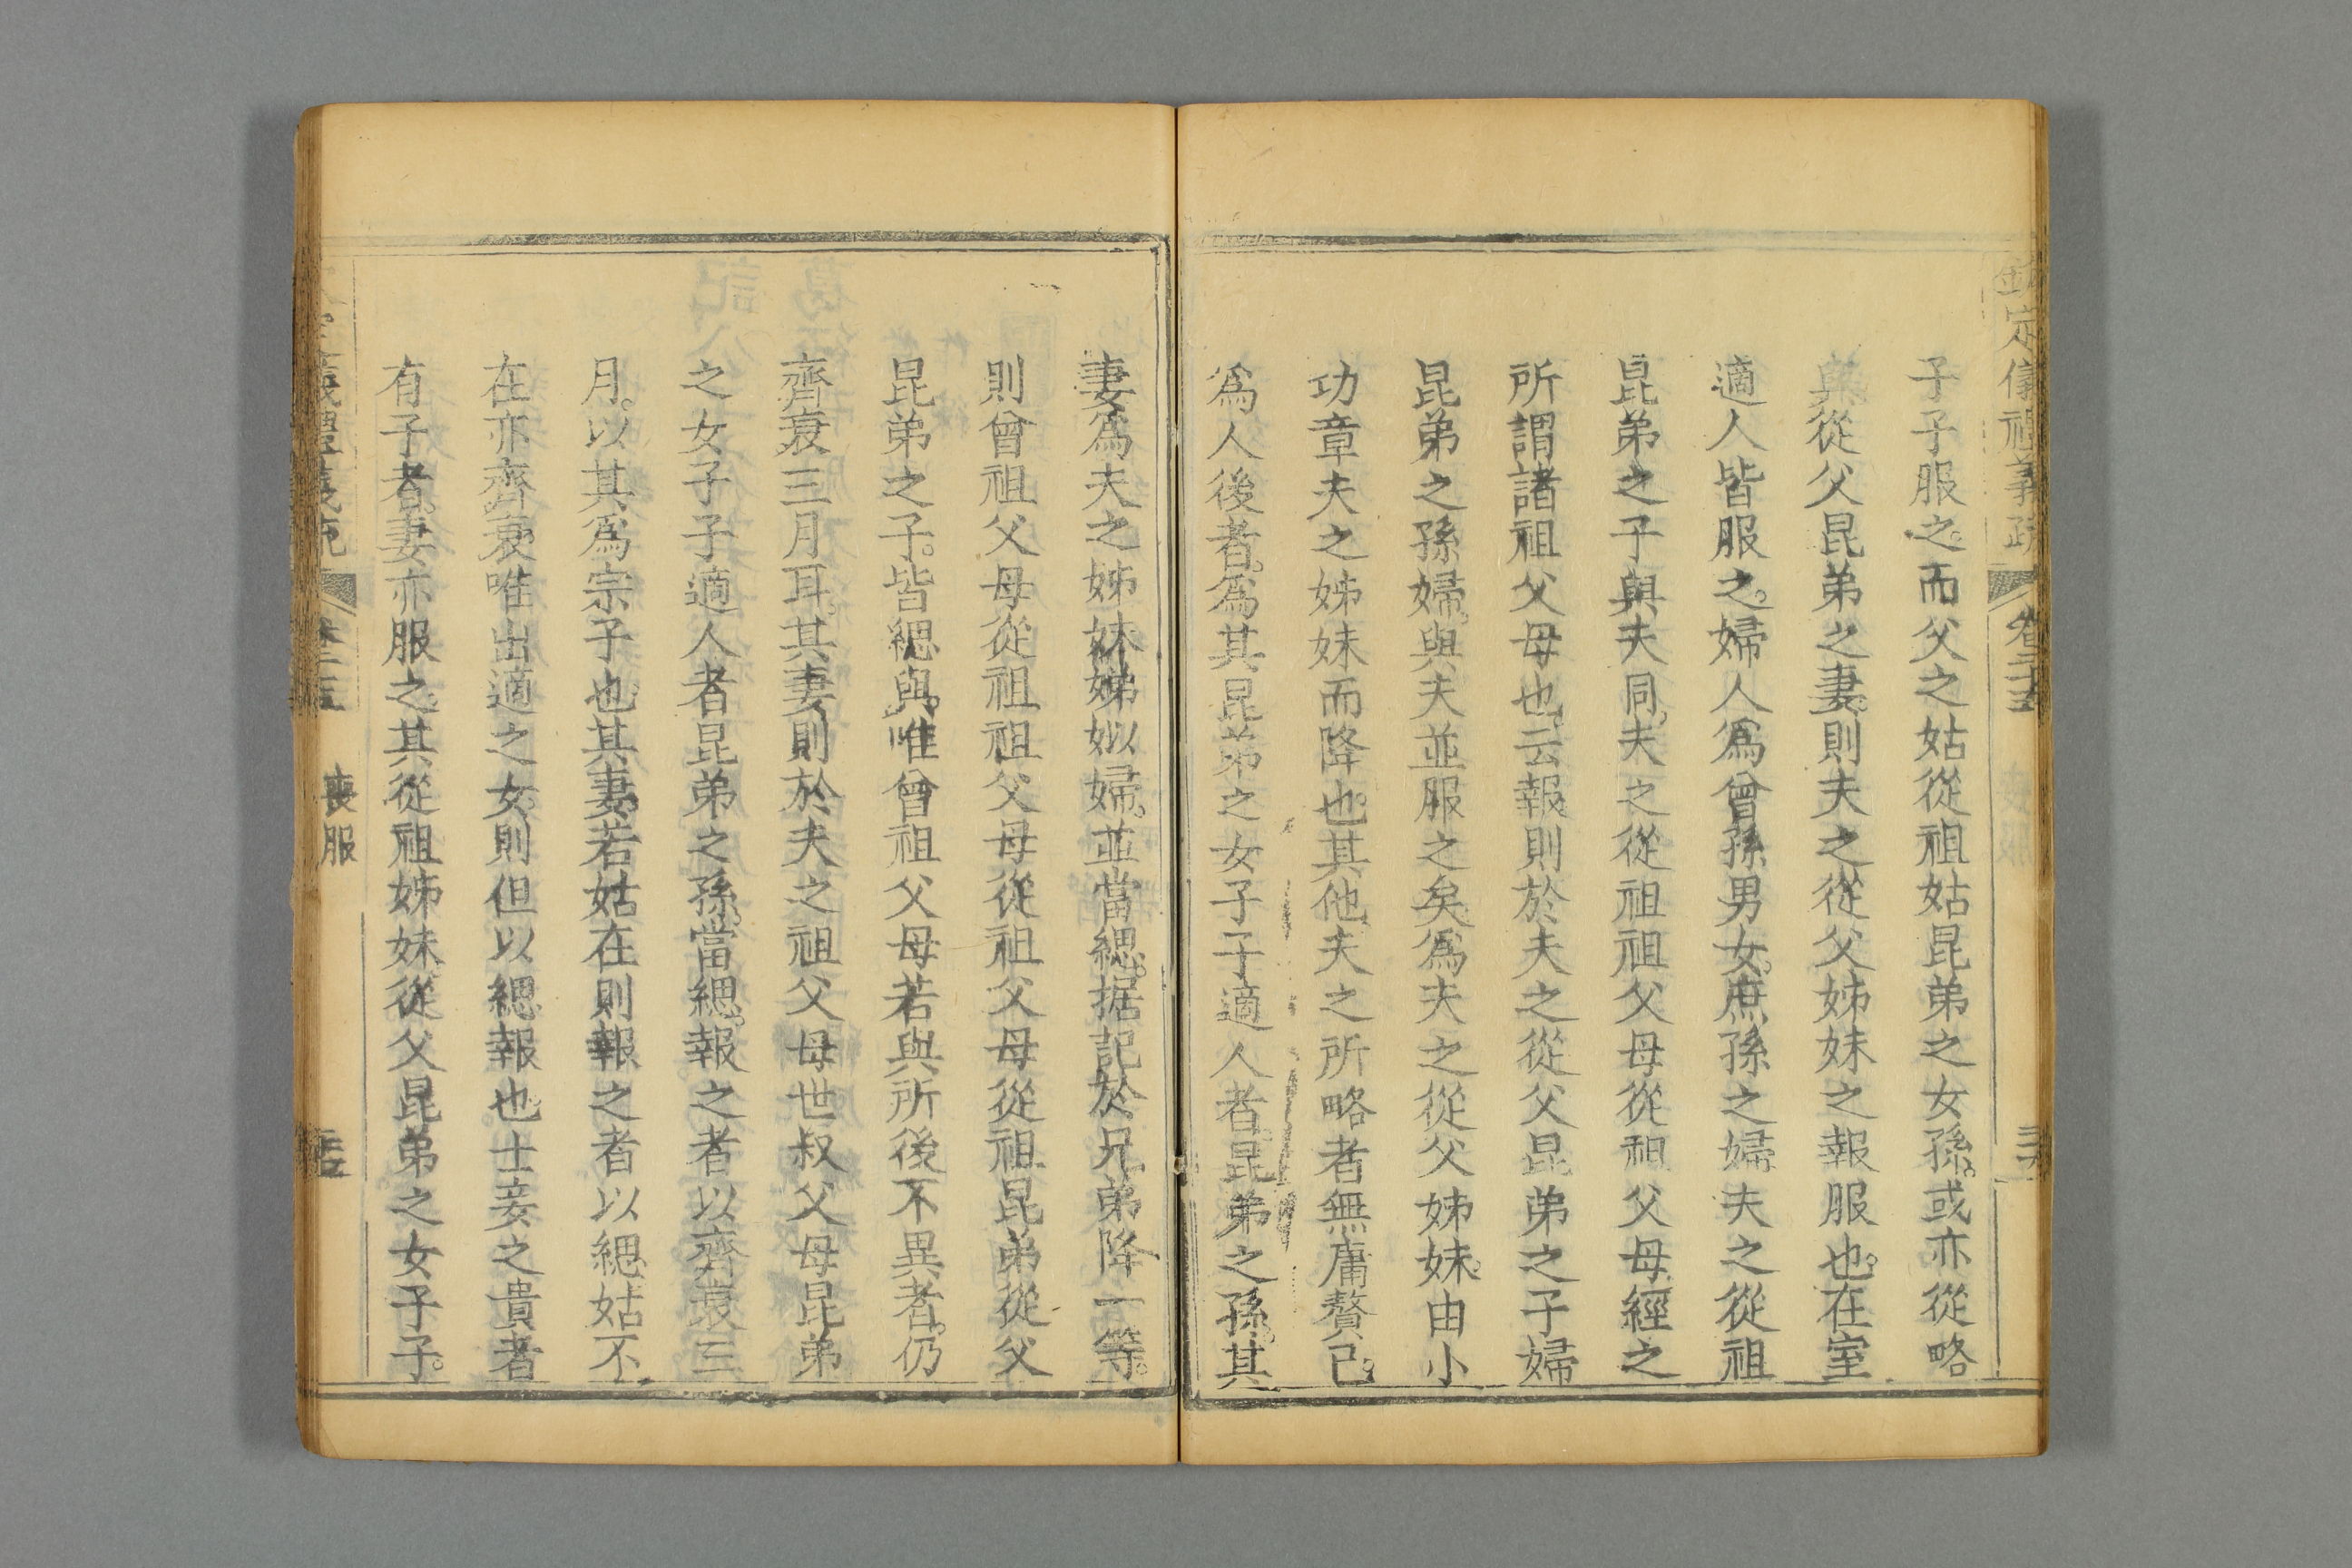 欽定儀禮義疏 卷二十五
子子服之而父之姑從祖姑昆弟之女孫或亦從略
與從父昆弟之妻則夫之從父姊妹之報服也在室
適人皆服之婦人爲曾孫男女庶孫之婦夫之從祖
昆弟之子與夫同夫之從祖祖父母從祖父母經之
所謂諸祖父母也云報則於夫之從父昆弟之子婦
昆弟之孫婦與夫並服之矣爲夫之從父姊妹由小
功章夫之姊妹而降也其他夫之所略者無庸贅已
爲人後者爲其昆弟之女子子適人者昆弟之孫其
妻爲夫之姊妹娣姒婦並當緦据記於兄弟降一等
則曾祖父母從祖祖父母從祖父母從祖昆弟從父
昆弟之子皆緦與唯曾祖父母若與所後不異者仍
齊衰三月耳其妻則於夫之祖父母世叔父母昆弟
之女子子適人者昆弟之孫當緦報之者以齊衰三
月以其爲宗子也其妻若姑在則報之者以緦姑不
在亦齊衰唯出適之女則但以緦報也士妾之貴者
有子者妻亦服之其從祖姊妹從父昆弟之女子子
喪服